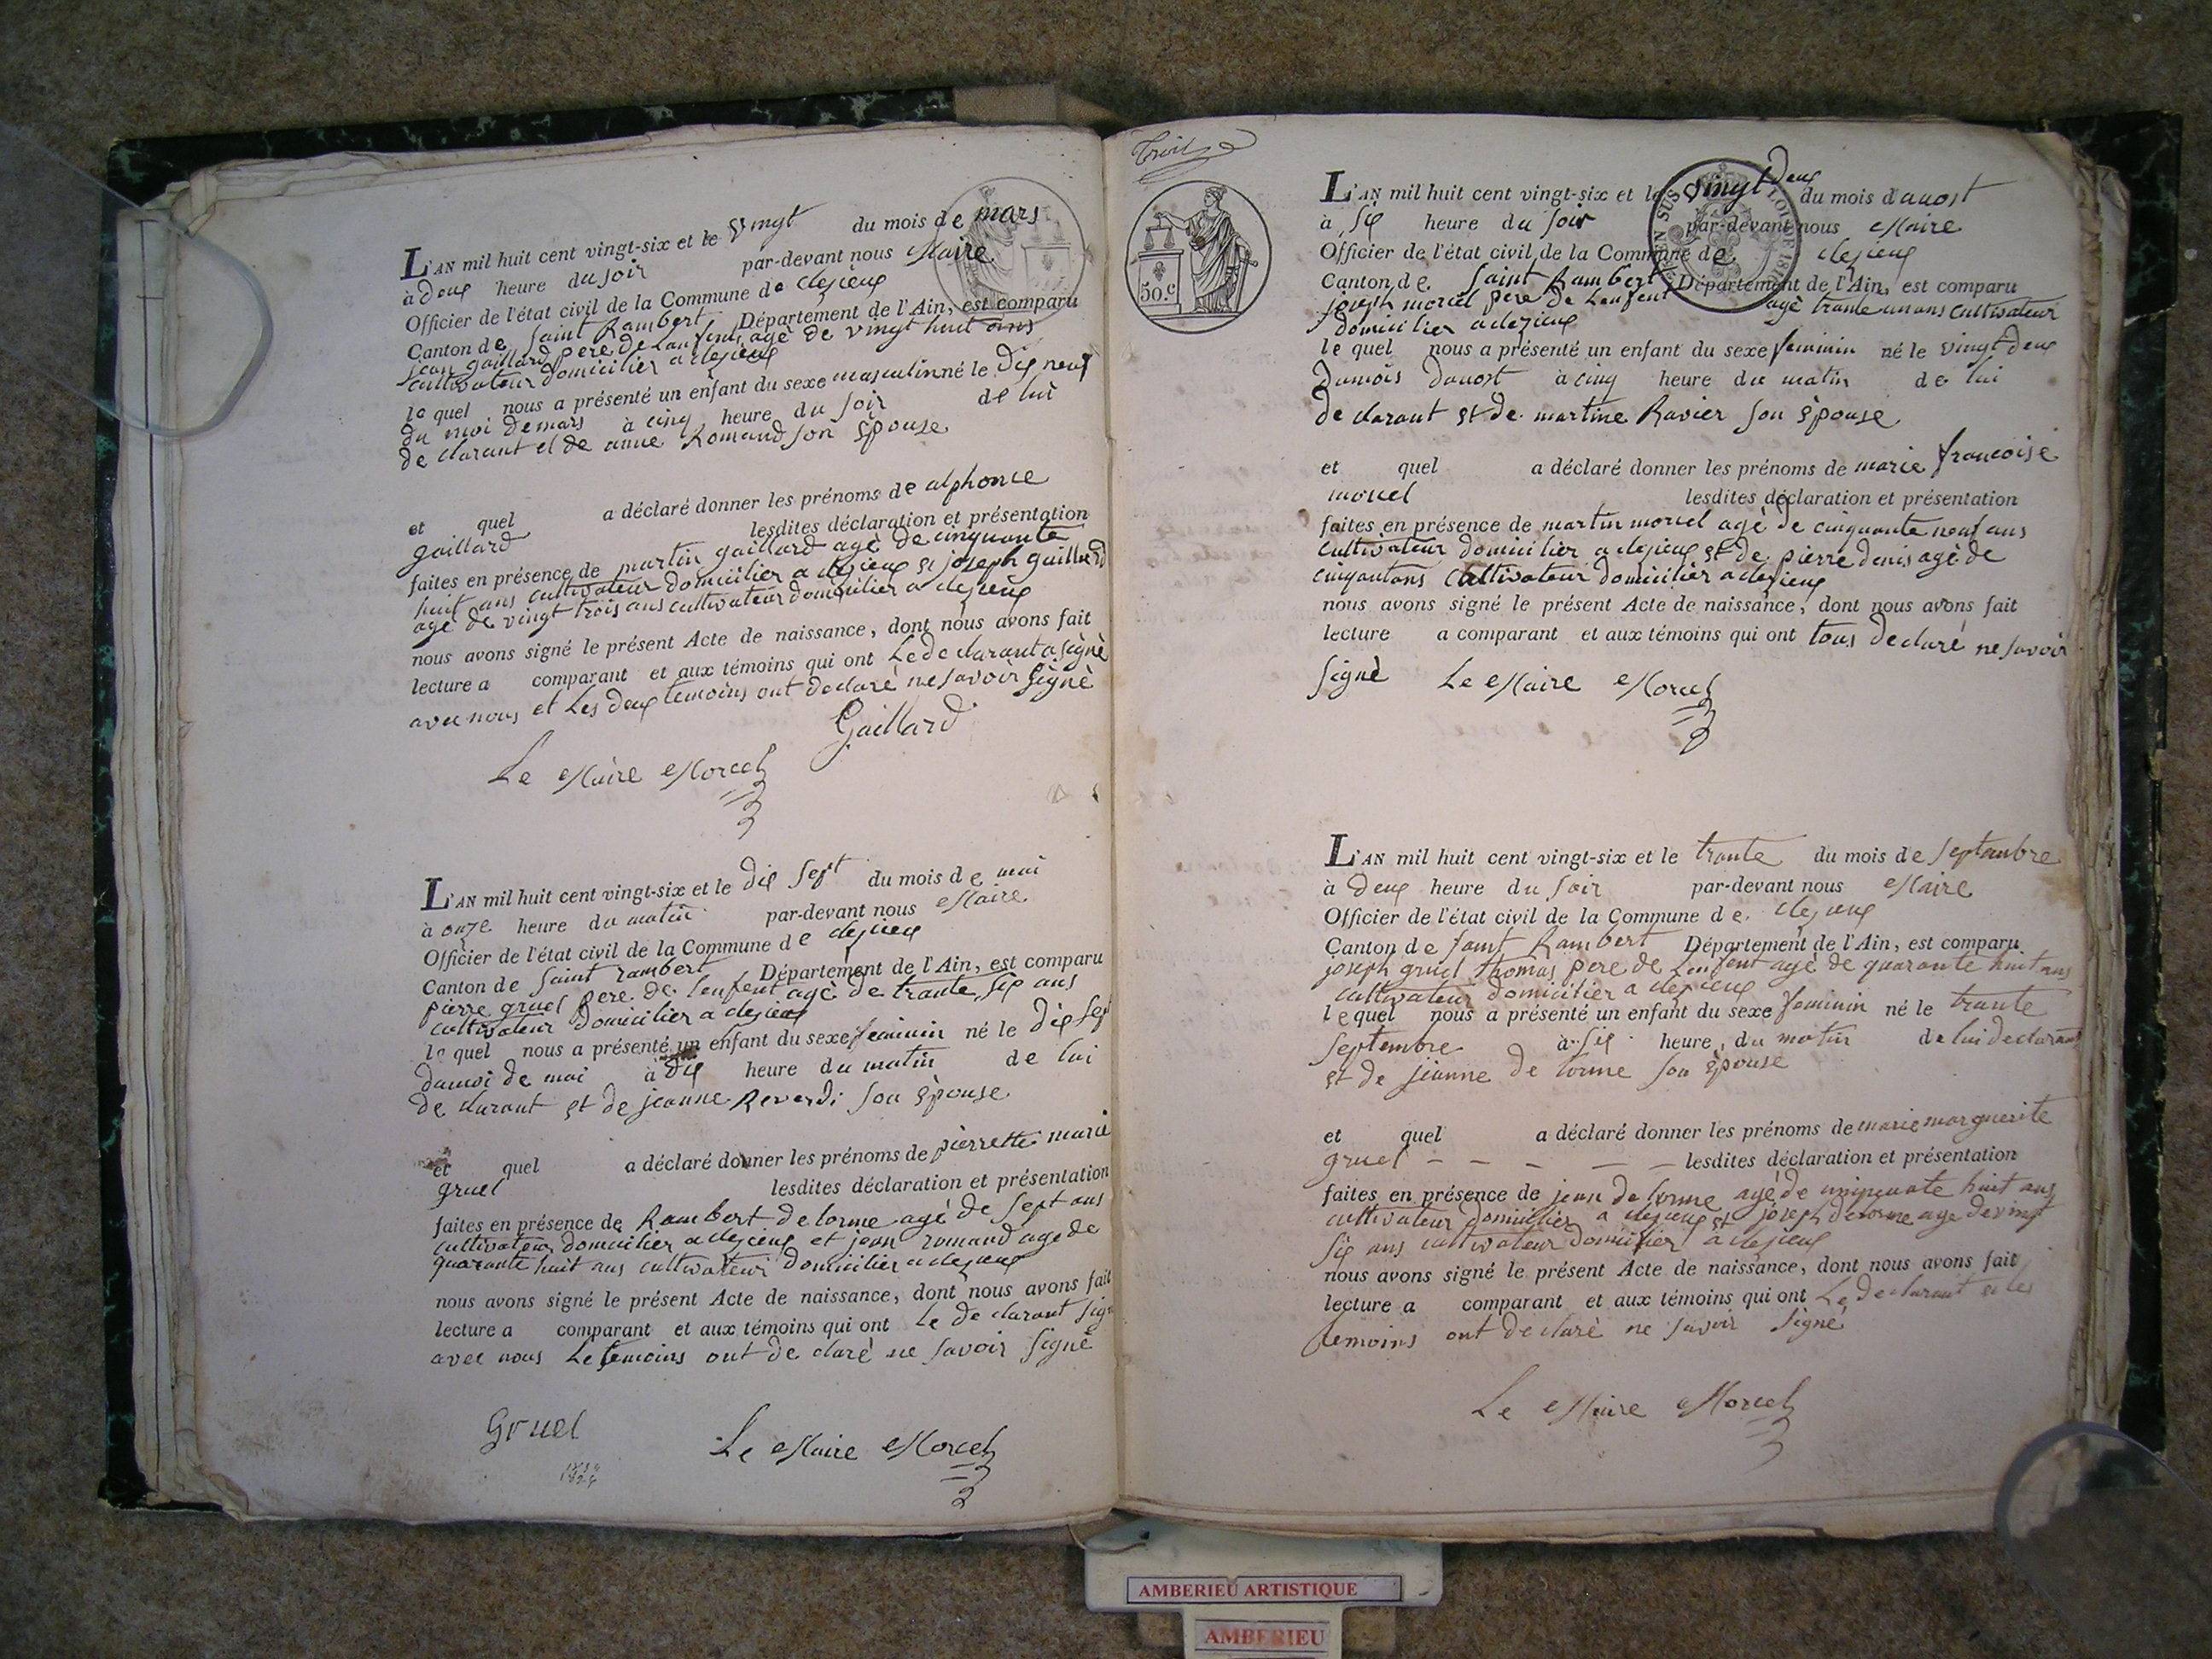 L'AN mil huit cent vingt-six et le vingt du mois de mars
à deux heure du soir par-devant nous Maire
Officier de l'état civil de la Commune de clezieux
Canton de Saint Rambert Département de l'Ain, est comparu
jean gaillard pere de Lenfent agè de vingt huit ans
cultivateur domicilier a clezieux
le quel nous a présenté un enfant du sexe masculin né le dix neuf
du moi de mars à cinq heure du soir de lui
de clarant et de anne Romand son èpouse
et quel a déclaré donner les prénoms de alphonce
gaillard lesdites déclaration et présentation
faites en présence de martin gaillard agè de cinquante
huit ans cultivateur domicilier a clezieux et joseph gaillard
agè de vingt trois ans cultivateur domicilier a clezieux
nous avons signé le présent Acte de naissance, dont nous avons fait
lecture a comparant et aux témoins qui ont Le de clarant a signè
avec nous et Les deux temoins ont declarè ne savoir signè
Gaillard
Le Maire Morcel
L'AN mil huit cent vingt-six et le dix sept du mois de mai
à onze heure du matin par-devant nous Maire
Officier de l'état civil de la Commune de clezieux
Canton de Saint rambert Département de l'Ain, est comparu
pierre gruel pere de lenfent agè de trante six ans
cultivateur domicilier a clezieux
le quel nous a présenté un enfant du sexe feminin né le dix sept
du moi de mai à dix heure du matin de lui
de clarant et de jeanne Reverdi son èpouse
et quel a déclaré donner les prénoms de pierrette marie
gruel lesdites déclaration et présentation
faites en présence de Rambert delorme agè de sept ans
cultivateur domicilier a clezieux et jean romand age de
quarante huit ans cultivateur domicilier a clezieux
nous avons signé le présent Acte de naissance, dont nous avons fait
lecture a comparant et aux témoins qui ont Le de clarant signè
avec nous Le temoins ont de clarè ne savoir signè
Gruel
Le Maire Morcel
50.c
L'AN mil huit cent vingt-six et le vingt deux du mois d'auost
à six heure du soir par-devant nous Maire
Officier de l'état civil de la Commune de clezieux
Canton de Saint Rambert Département de l'Ain, est comparu
joseph morcel pere de Lenfent agè trante un ans cultivateur
domicilier a clezieux
le quel nous a présenté un enfant du sexe feminin né le vingt deux
du mois d'auost à cinq heure du matin de lui
de clarant et de martine Ravier son èpouse
et quel a déclaré donner les prénoms de marie francoise
morcel lesdites déclaration et présentation
faites en présence de martin morcel agè de cinquante neuf ans
cultivateur domicilier a clezieux et de pierre denis agè de
cinquantans cultivateur domicilier a clezieux
nous avons signé le présent Acte de naissance, dont nous avons fait
lecture a comparant et aux témoins qui ont tous declarè ne savoir
signè Le Maire Morcel
L'AN mil huit cent vingt-six et le trante du mois de septambre
à deux heure du soir par-devant nous Maire
Officier de l'état civil de la Commune de clezieux
Canton de Saint Rambert Département de l'Ain, est comparu
joseph gruel thomas pere de Lenfent agè de quarante huit ans
cultivateur domicilier a clezieux
le quel nous a présenté un enfant du sexe feminin né le trante
septembre à six heure du matin de lui declarant
et de jeanne de lorme son èpouse
et quel a déclaré donner les prénoms de marie marguerite
gruel lesdites déclaration et présentation
faites en présence de jean de lorme agè de cinquante huit ans
cultivateur domicilier a clezieux et joseph delorme age de vingt
six ans cultivateur domicilier a clezieux
nous avons signé le présent Acte de naissance, dont nous avons fait
lecture a comparant et aux témoins qui ont Le de clarant et les
temoins ont declarè ne savoir signè
Le Maire Morcel
AMBERIEU ARTISTIQUE
AMBERIEU